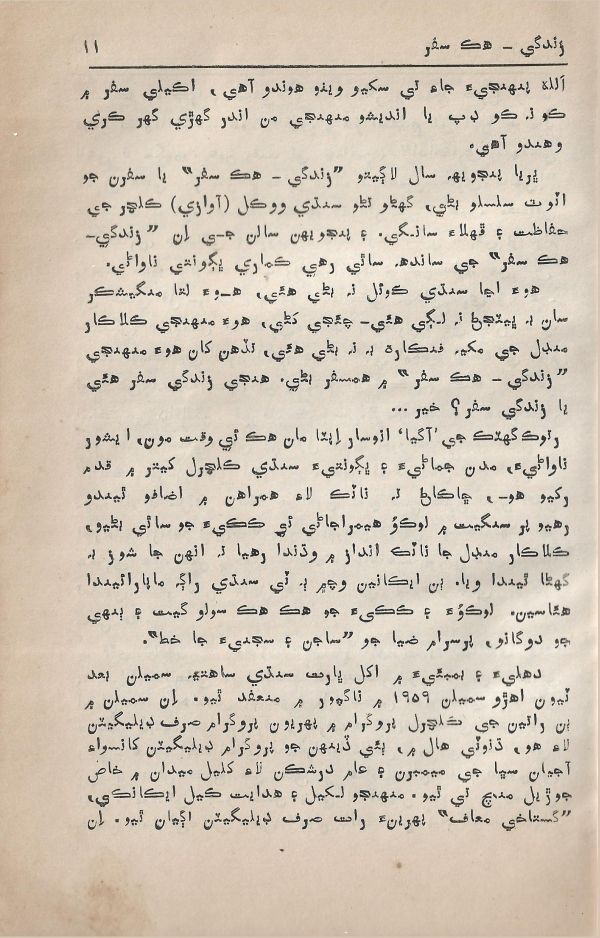 زندگي ـ هڪ سفر ١١
الله پنهنجيءَ جاءِ تي سکيو ويٺو هوندو آهي، اڪيلي سفر ۾
ڪو نہ ڪو ڊپ يا انديشو منهنجي من اندر گهڙي گهر ڪري
وهندو آهي.
پريا پنجويهہ سال لاڳيتو ”زندگي ـ هڪ سفر“ يا سفرن جو
اڻوٽ سلسلو بڻي، گهڻو تڻو سنڌي ووڪل (آوازي) ڪلچر جي
حفاظت ۽ ڦهلاءَ سانگي. ۽ پنجويهن سالن جي اِن ”زندگي۔
هڪ سفر“ جي ساندهہ ساٿي رهي ڪماري ڀڳونتي ناواڻي.
هوءَ اڃا سنڌي ڪوئل نہ بڻي هئي، هوءَ لتا منگيشڪر
سان بہ ڀيٽجڻ نہ لڳي هئي۔ چئجي کڻي، هوءَ منهنجي ڪلاڪار
منڊل جي مکيہ فنڪارہ بہ نہ بڻي هئي، تڏهن کان هوءَ منهنجي
”زندگي ـ هڪ سفر“ ۾ همسفر بڻي. هنجي زندگي سفر هئي
يا زندگي سفر؟ خير ...
رتوڪگهٽڪ جي ’آگيا‘ انوسار اِپٽا مان هڪ ئي وقت مون، ايشور
ناواڻيءَ، مدن جماڻيءَ ۽ ڀڳونتيءَ سنڌي ڪلچرل کيتر ۾ قدم
رکيو هو، ڇاڪاڻ تہ ناٽڪ لاءِ همراهن ۾ اضافو ٿيندو
رهيو پر سنگيت ۾ لوڪوُ هيمراجاڻي ئي ڪڪيءَ جو ساٿي بڻيو،
ڪلاڪار منڊل جا ناٽڪ انداز ۾ وڌندا رهيا تہ انهن جا شوز بہ
گهڻا ٿيندا ويا. ٻن ايڪانڪين وچ ۾ بہ ٽي سنڌي راڳ ماپارائيندا
هئاسين. لوڪوُءَ ۽ ڪڪيءَ جو هڪ هڪ سولو گيت ۽ ٻنهي
جو دوگانو، پرسرام ضيا جو ”ساجن ۽ سجنيءَ جا خط“.
دهليءَ ۽ بمبئيءَ ۾ اکل ڀارت سنڌي ساهتيہ سميلن بعد
ٽيون اهڙو سميلن ١٩٥٩ ۾ ناگپور ۾ منعقد ٿيو. اِن سميلن ۾
ٻن راتين جي ڪلچرل پروگرام ۾ پهريون پروگرام صرف ڊيليگيٽن
لاءِ هو، ڌنوٽي هال ۾، ٻئي ڏينهن جو پروگرام ڊيليگيٽن کانسواءِ
آجيان سڀا جي ميمبرن ۽ عام درشڪن لاءِ کليل ميدان ۾ خاص
جوڙيل منچ تي ٿيو. منهنجو لکيل ۽ هدايت ڪيل ايڪانڪي،
”گستاخي معاف“ پهرينءَ رات صرف ڊيليگيٽن اڳيان ٿيو. اِن